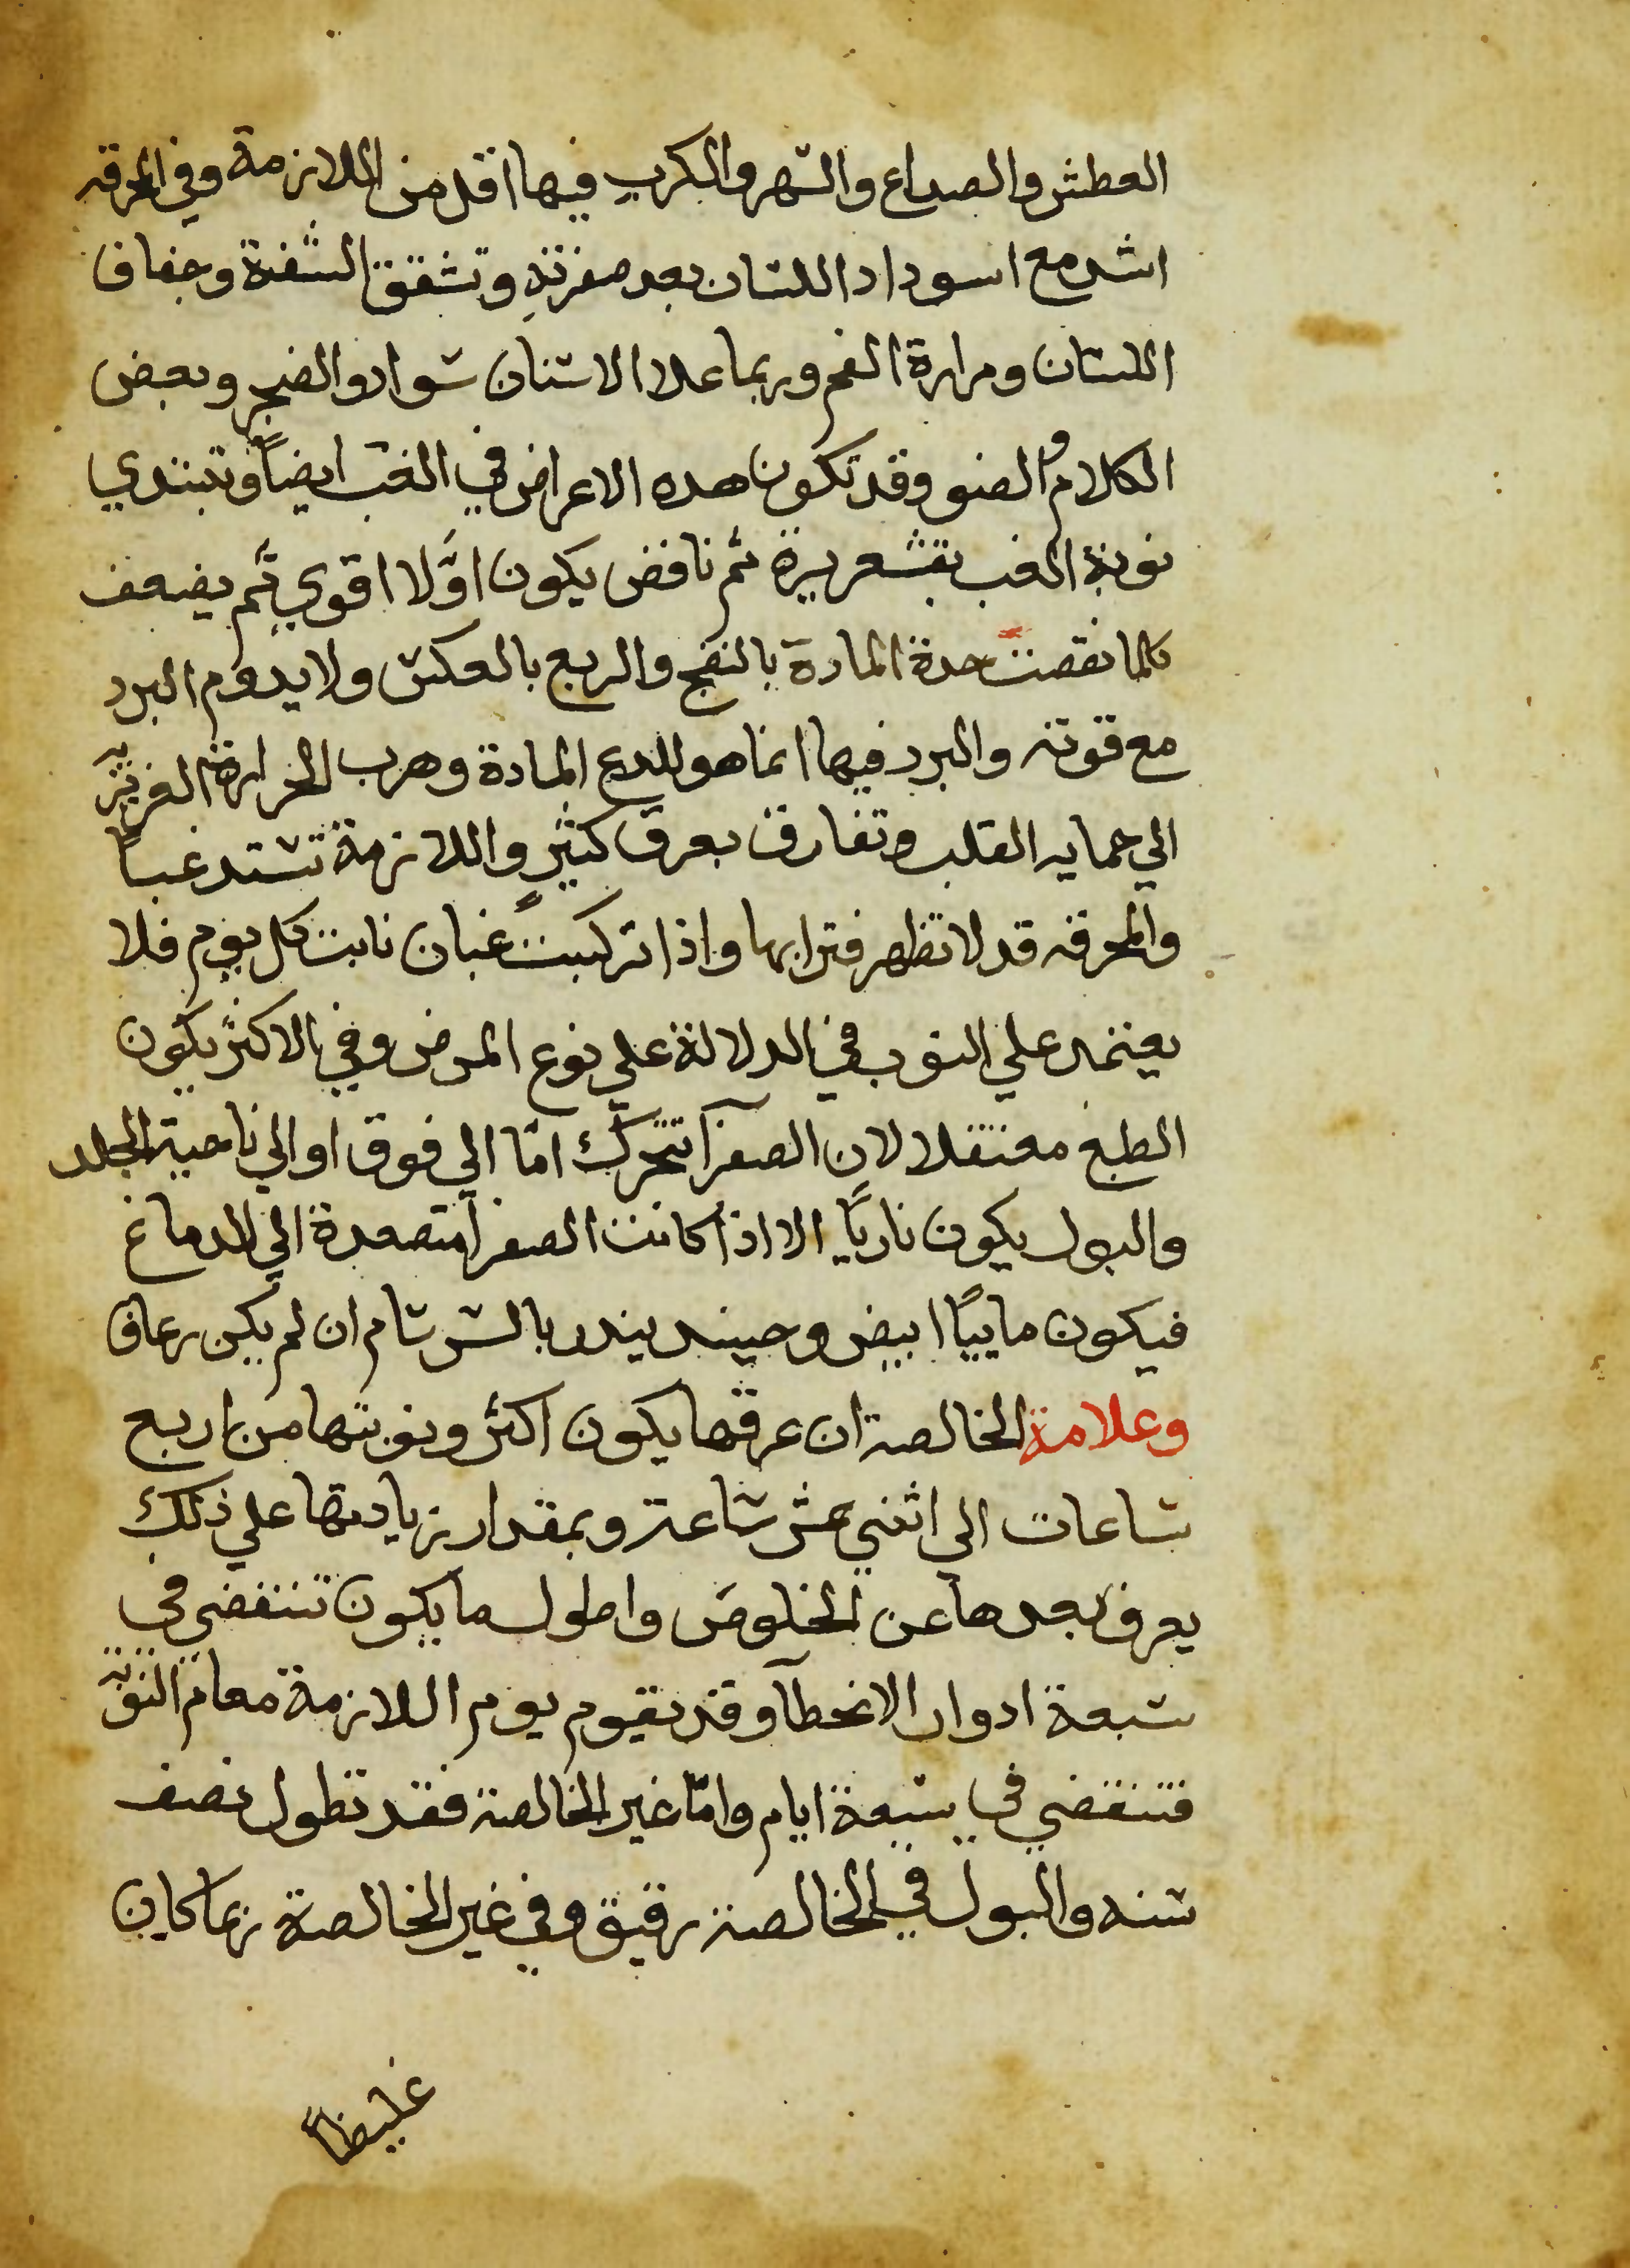 العطش والصداع والسهر والكرب فيها اقل من اللازمة وفي المحرقه
اشد مع اسوداد اللسان بعد صفرته وتشقق الشفة وجفاف
اللسان ومرارة الفم وربما علا الاسنان سواد والضجر وبعض
الكلام والضو وقد تكون هده الاعراض في الغب ايضاً وتبتدي
نوبة الغب بقشعريرة ثم نافض يكون اوّلا اقوي ثم يضعف
كلما نقصت حدة المادة بالنضج والربع بالعكس ولا يدوم البرد
مع قوته والبرد فيها انما هو للدع المادة وهرب الحرارة الغريزيه
الي حمايه القلب وتفارق بعرق كثير واللازمة تشتد غباً
والمحرقه قد لا تظهر فترابها واذا تركبت غبان نابت كل يوم فلا
يعتمد علي النوب في الدلالة علي نوع المرض وفي الاكثر يكون
الطبع معتقلا لان الصفرآ تتحرك امّا الي فوق او الي ناحية الجلد
والبول يكون ناريًا الا اذا كانت الصفرآ متصعدة الي الدماغ
فيكون ماييًا ابيض وحينيد يندر بالسرسام ان لم يكن رعاف
وعلامة الخالصة ان عرقها يكون اكثر ونوبتها من اربع
ساعات الي اثني عشر ساعة وبمقدار زيادتها علي ذلك
يعرف بعدها عن الخلوص واطول ما يكون تنقضي في
سبعة ادوار الا لخطآ وقد يقوم يوم اللازمة مقام النوبة
فتنقضي في سبعة ايام وامّا غير الخالصة فقد تطول نصف
سنه والبول في الخالصة رقيق وفي غير الخالصة ربما كان
غليظاً